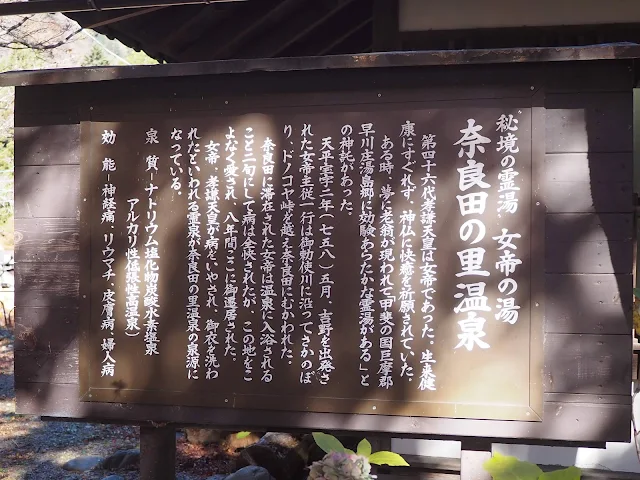 秘境の霊湯 女帝の湯
奈良田の里温泉
第四十六代孝謙天皇は女帝であった。生来健
康にすぐれず、神仏に快癒を祈願されていた。
ある時、夢に老翁が現われて「甲斐の国巨摩郡
早川庄湯島郷に効験あらたかな霊湯がある」と
の神託があった。
天平宝字二年(七五八)五月、吉野を出発さ
れた女帝主従一行は御勅使川に沿ってさかのぼ
り、ドノコヤ峠を越え奈良田にむかわれた。
奈良田に滞在された女帝は温泉に入浴される
こと二旬にして病は全快されたが、この地をこ
よなく愛され、八年間ここに御遷居された。
女帝、孝謙天皇が病をいやされ、御衣を洗わ
れたといわれる霊泉が奈良田の里温泉の泉源に
なっている。
泉質ーナトリウム塩化物炭酸水素塩泉
アルカリ性低張性高温泉)
効能ー神経痛、リウマチ、皮膚病、婦人病